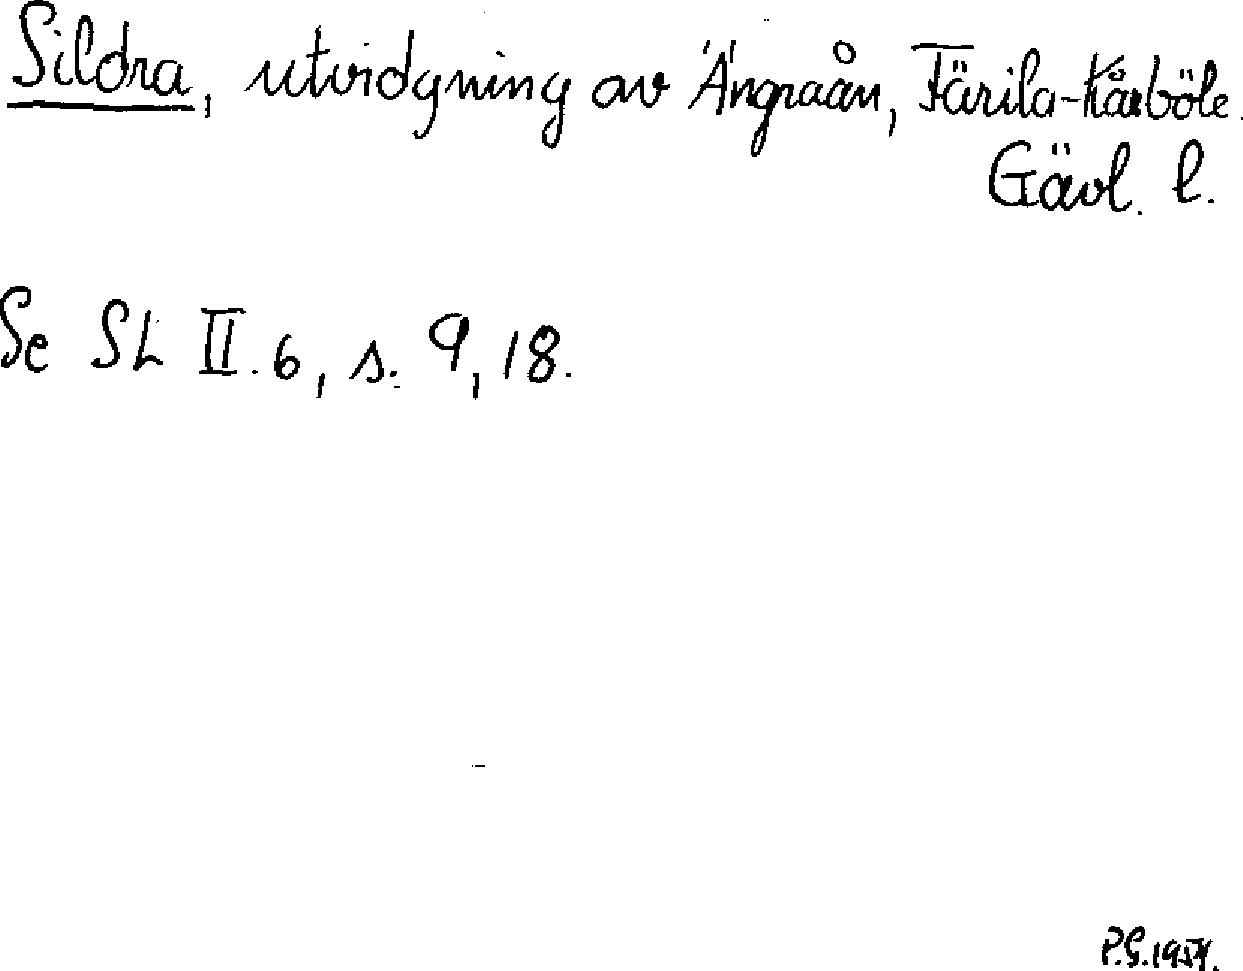 Sildra, utvidgning av Ängraån, Färila-Kårböle.
Gävl. l.
Se SL II.6, s. 9, 18.
P.G. 1954.